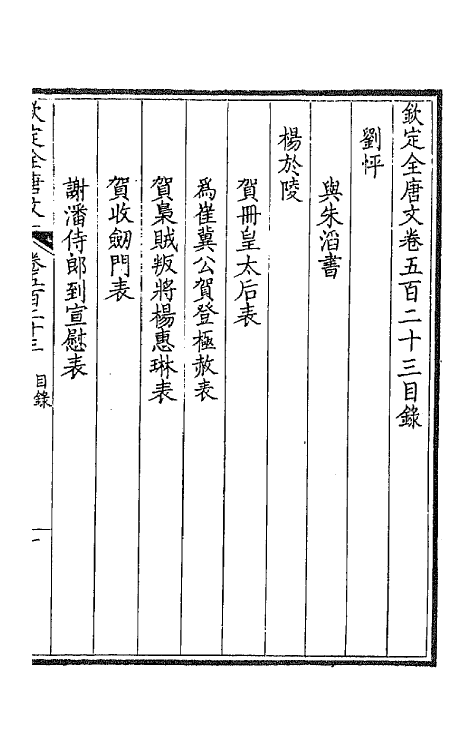 欽定全唐文卷五百二十三目錄
劉怦
與朱滔書
楊於陵
賀冊皇太后表
為崔冀公賀登極赦表
賀梟賊叛將楊惠琳表
賀收劒門表
謝潘侍郎到宣慰表
欽定全唐文
卷五百二十三
目錄
一